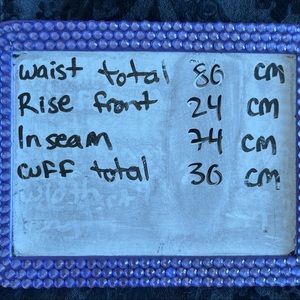 Waist total 86 cm
Rise front 24 cm
Inseam 74 cm
Cuff total 36 cm